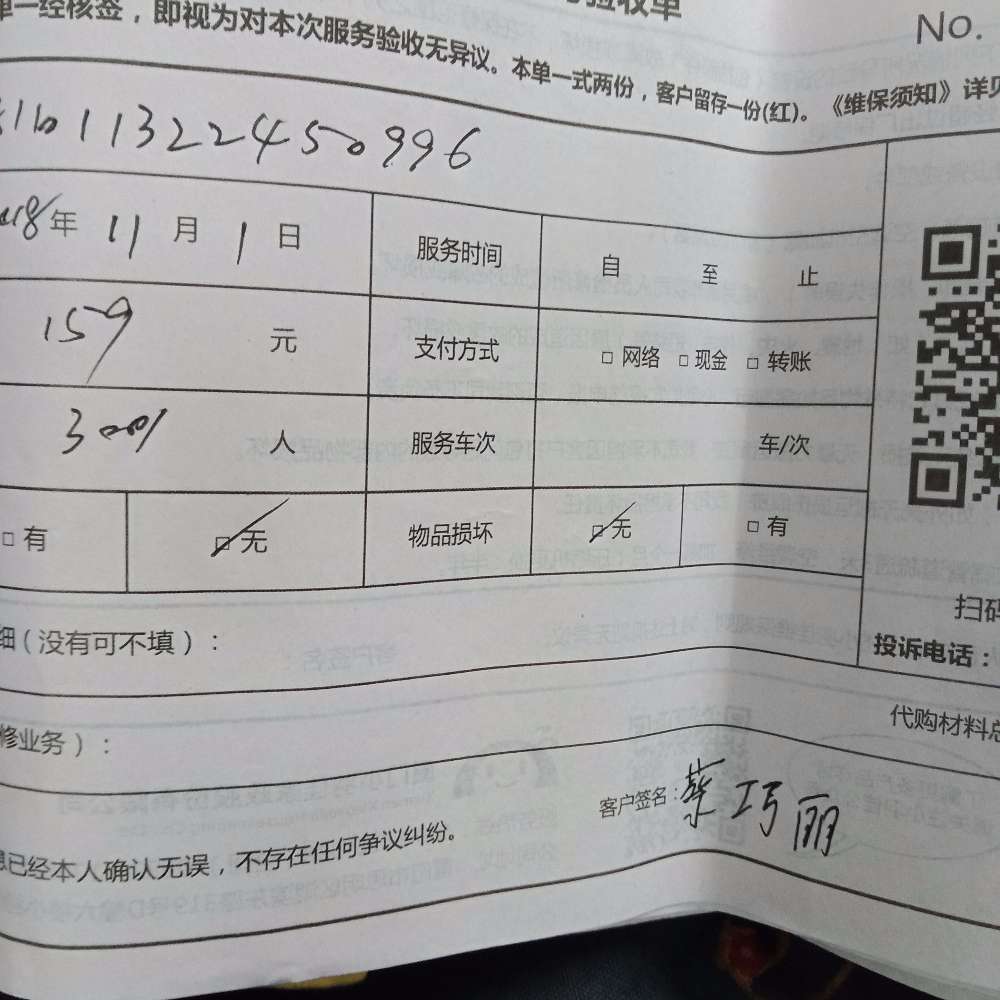 验收单
No.
单一经核签，即视为对本次服务验收无异议。本单一式两份，客户留存一份(红)。《维保须知》详见
11322450996
年 11 月 1 日 服务时间 自 至 止
159 元 支付方式 □ 网络 □ 现金 □ 转账
3 人 服务车次 车/次
□ 有 □ 无 物品损坏 □ 无 □ 有
扫码
细（没有可不填）：
投诉电话：
代购材料总
修业务）：
客户签名：蔡巧丽
息已经本人确认无误，不存在任何争议纠纷。